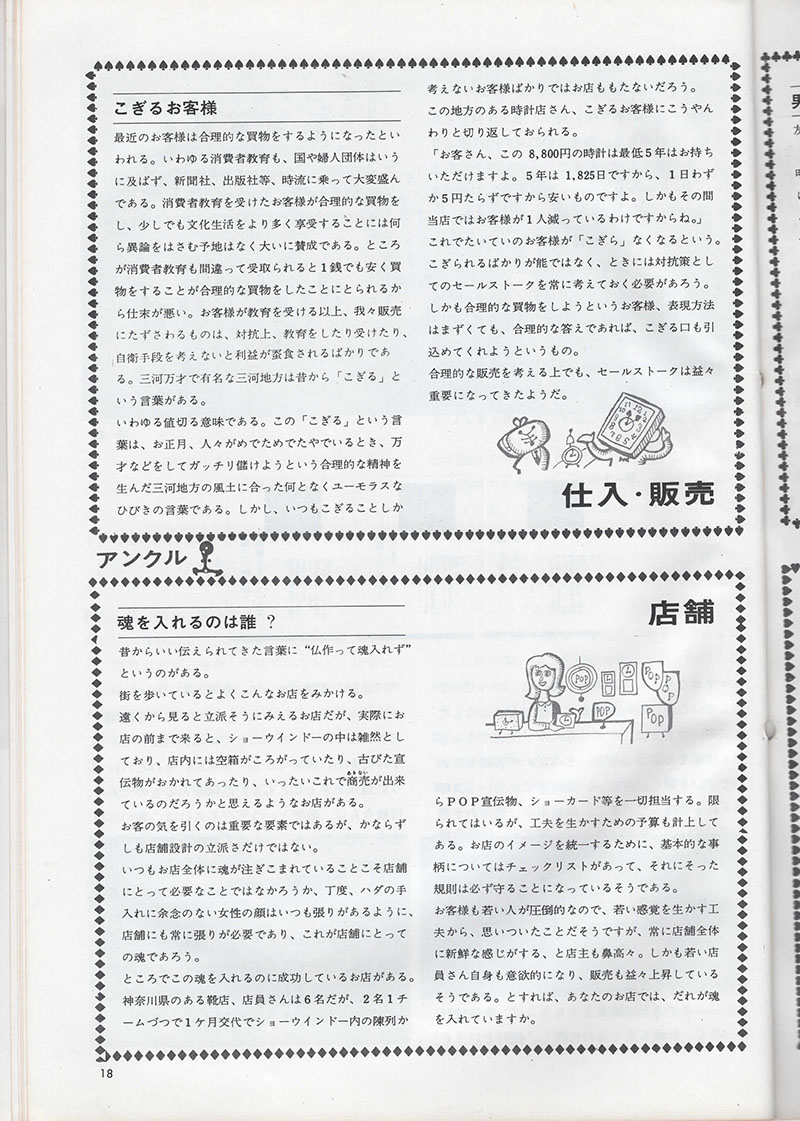 こぎるお客様
最近のお客様は合理的な買物をするようになったとい
われる。いわゆる消費者教育も、国や婦人団体はいう
に及ばず、新聞社、出版社等、時流に乗って大変盛ん
である。消費者教育を受けたお客様が合理的な買物を
し、少しでも文化生活をより多く享受することには何
ら異論をはさむ予地はなく大いに賛成である。ところ
が消費者教育も間違って受取られると1銭でも安く買
物をすることが合理的な買物をしたことにとられるか
ら仕末が悪い。お客様が教育を受ける以上、我々販売
にたずさわるものは、対抗上、教育をしたり受けたり、
自衛手段を考えないと利益が蚕食されるばかりであ
る。三河万才で有名な三河地方は昔から「こぎる」と
いう言葉がある。
いわゆる値切る意味である。この「こぎる」という言
葉は、お正月、人々がめでためでたやでいるとき、万
才などをしてガッチリ儲けようという合理的な精神を
生んだ三河地方の風土に合った何となくユーモラスな
ひびきの言葉である。しかし、いつもこぎることしか
考えないお客様ばかりではお店ももたないだろう。
この地方のある時計店さん、こぎるお客様にこうやん
わりと切り返しておられる。
「お客さん、この 8,800円の時計は最低5年はお持ち
いただけますよ。5年は 1,825日ですから、1日わず
か5円たらずですから安いものですよ。しかもその間
当店ではお客様が1人減っているわけですからね。」
これでたいていのお客様が「こぎら」なくなるという。
こぎられるばかりが能ではなく、ときには対抗策とし
てのセールストークを常に考えておく必要があろう。
しかも合理的な買物をしようというお客様、表現方法
はまずくても、合理的な答えであれば、こぎる口も引
込めてくれようというもの。
合理的な販売を考える上でも、セールストークは益々
重要になってきたようだ。
仕入・販売
アンクル
店舗
魂を入れるのは誰？
昔からいい伝えられてきた言葉に“仏作って魂入れず”
というのがある。
街を歩いているとよくこんなお店をみかける。
遠くから見ると立派そうにみえるお店だが、実際にお
店の前まで来ると、ショーウインドーの中は雑然とし
ており、店内には空箱がころがっていたり、古びた宣
伝物がおかれてあったり、いったいこれで商売が出来
あきない
ているのだろうかと思えるようなお店がある。
お客の気を引くのは重要な要素ではあるが、かならず
しも店舗設計の立派さだけではない。
いつもお店全体に魂が注ぎこまれていることこそ店舗
にとって必要なことではなかろうか、丁度、ハダの手
入れに余念のない女性の顔はいつも張りがあるように、
店舗にも常に張りが必要であり、これが店舗にとって
の魂であろう。
ところでこの魂を入れるのに成功しているお店がある。
神奈川県のある靴店、店員さんは6名だが、2名1チ
ームづつで1ケ月交代でショーウインドー内の陳列か
POP
POP
POP
POP
POP
らPOP宣伝物、ショーカード等を一切担当する。限
られてはいるが、工夫を生かすための予算も計上して
ある。お店のイメージを統一するために、基本的な事
柄についてはチェックリストがあって、それにそった
規則は必ず守ることになっているそうである。
お客様も若い人が圧倒的なので、若い感覚を生かす工
夫から、思いついたことだそうですが、常に店舗全体
に新鮮な感じがする、と店主も鼻高々。しかも若い店
員さん自身も意欲的になり、販売も益々上昇している
そうである。とすれば、あなたのお店では、だれが魂
を入れていますか。
18